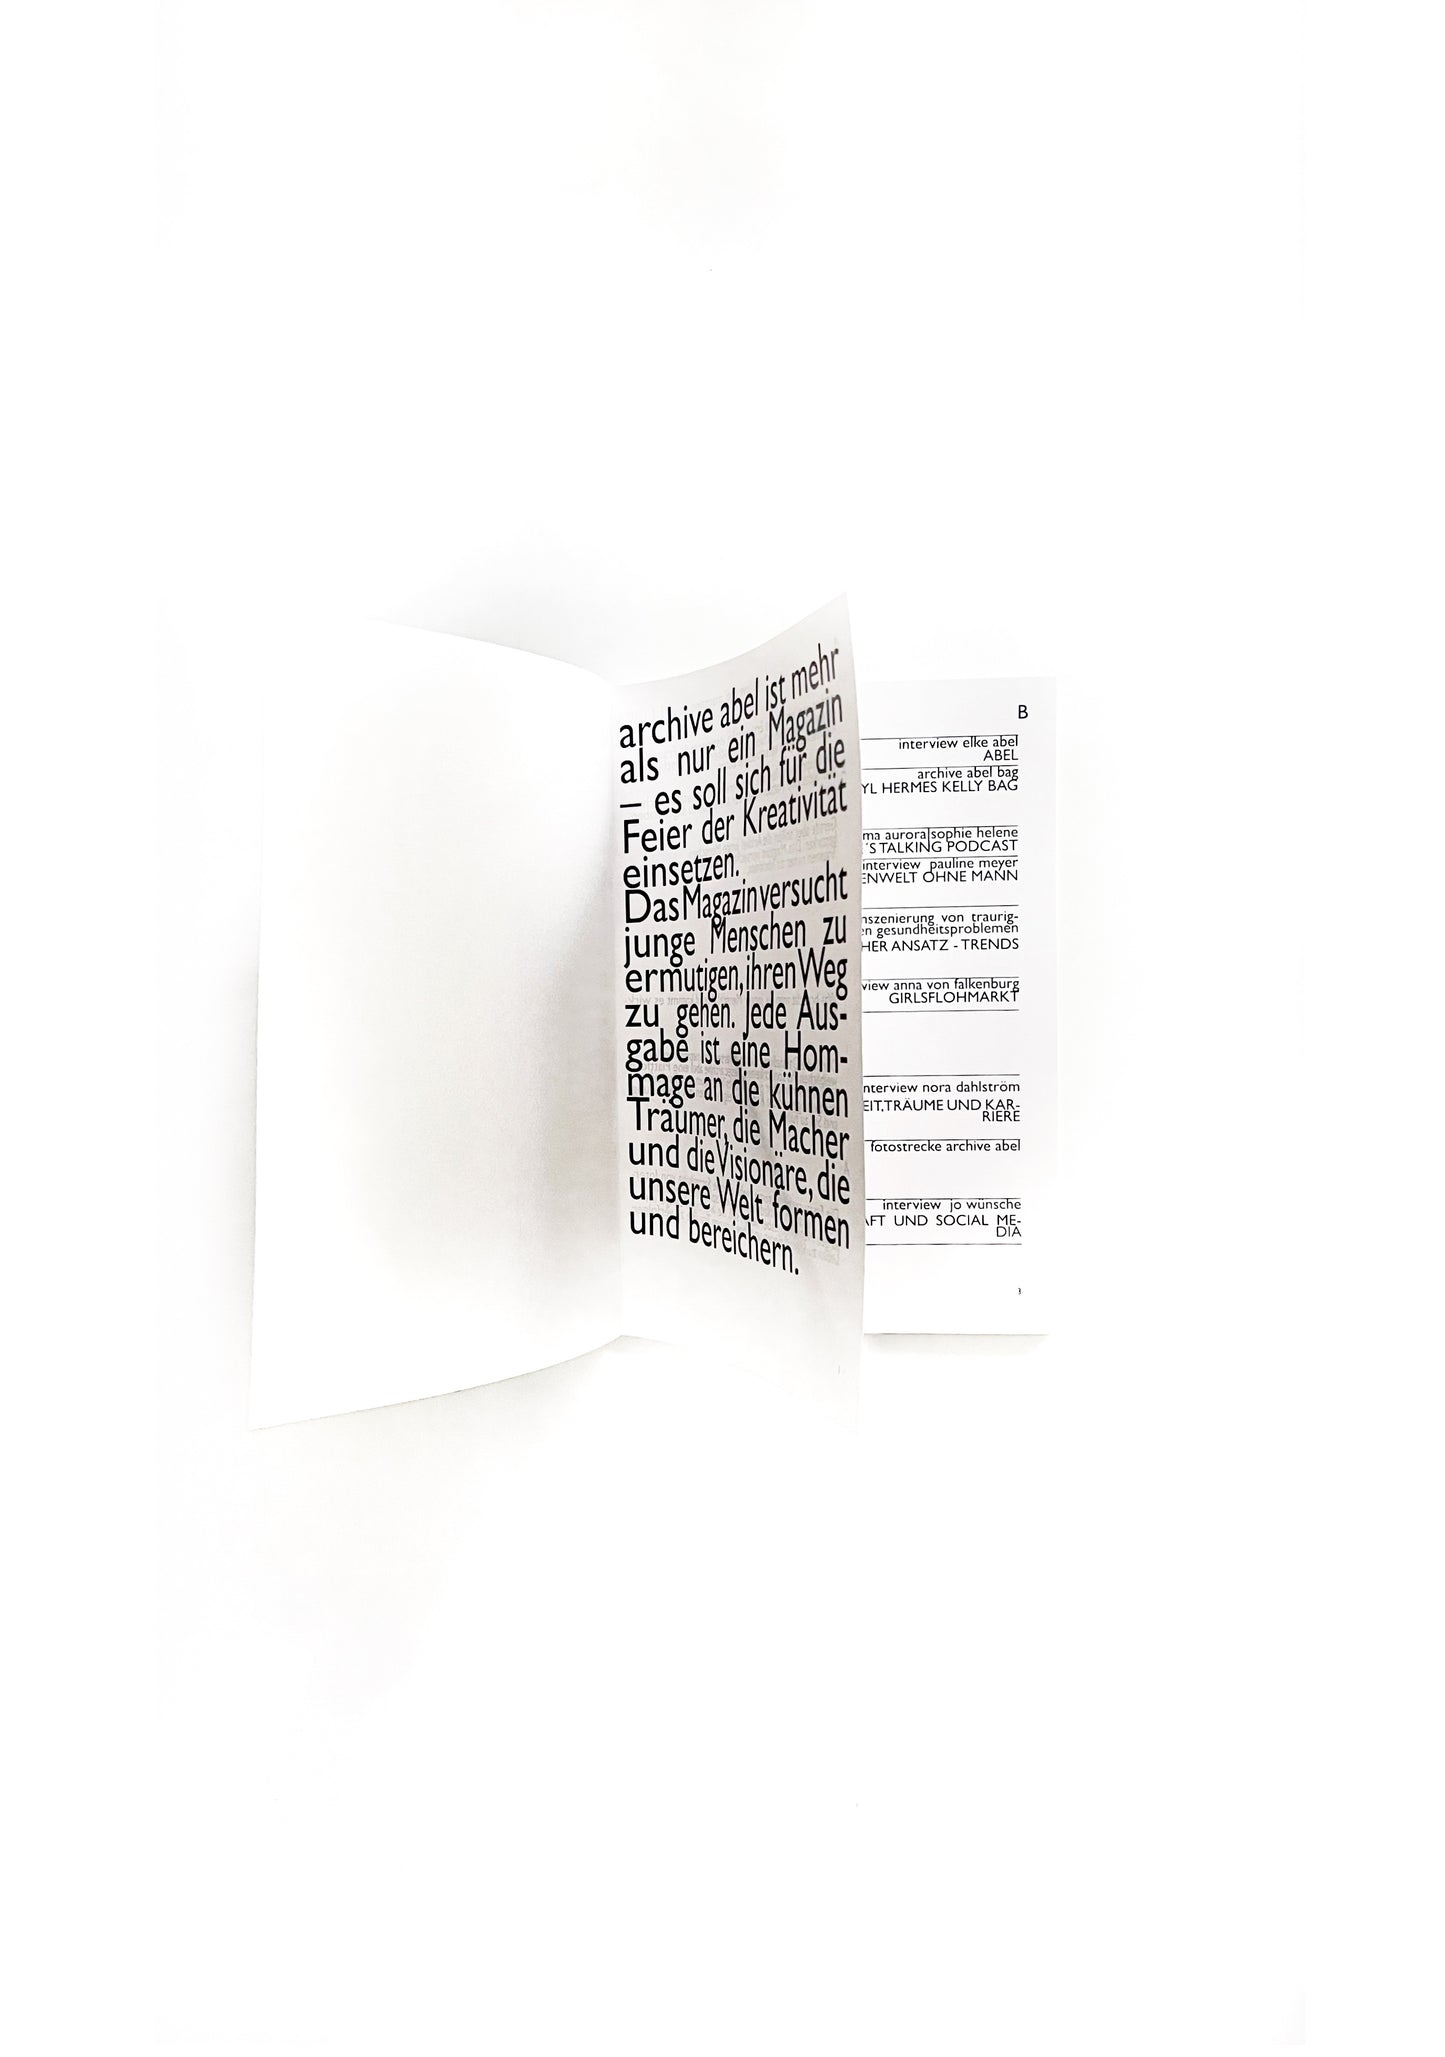 archive abel ist mehr
als nur ein Magazin
— es soll sich für die
Feier der Kreativität
einsetzen.
Das Magazin versucht
junge Menschen zu
ermutigen, ihren Weg
zu gehen. Jede Aus-
gabe ist eine Hom-
mage an die kühnen
Träumer, die Macher
und die Visionäre, die
unsere Welt formen
und bereichern.
B
interview elke abel
ABEL
archive abel bag
YL HERMES KELLY BAG
ma aurora|sophie helene
´S TALKING PODCAST
interview pauline meyer
ENWELT OHNE MANN
nszenierung von traurig-
en gesundheitsproblemen
HER ANSATZ - TRENDS
view anna von falkenburg
GIRLSFLOHMARKT
interview nora dahlström
EIT, TRÄUME UND KAR-
RIERE
fotostrecke archive abel
interview jo wünsche
AFT UND SOCIAL ME-
DIA